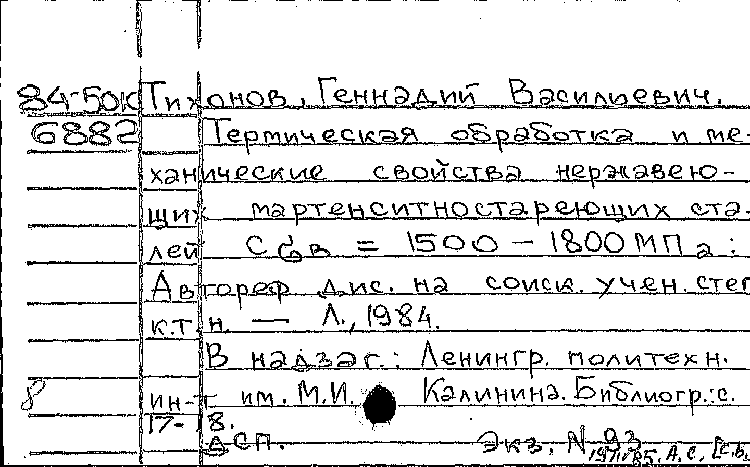 84-50к Тихонов, Геннадий Васильевич.
6882 Термическая обработка и ме-
ханические свойства нержавею-
щих мартенситностареющих ста-
лей с σв = 1500 – 1800 МПа:
Автореф. дис. на соиск. учен. степ
к.т.н. — Л., 1984.
В надзаг.: Ленингр. политехн.
8 ин-т им. М.И. Калинина. Библиогр.: с.
17-18.
ДСП. Экз. N 93